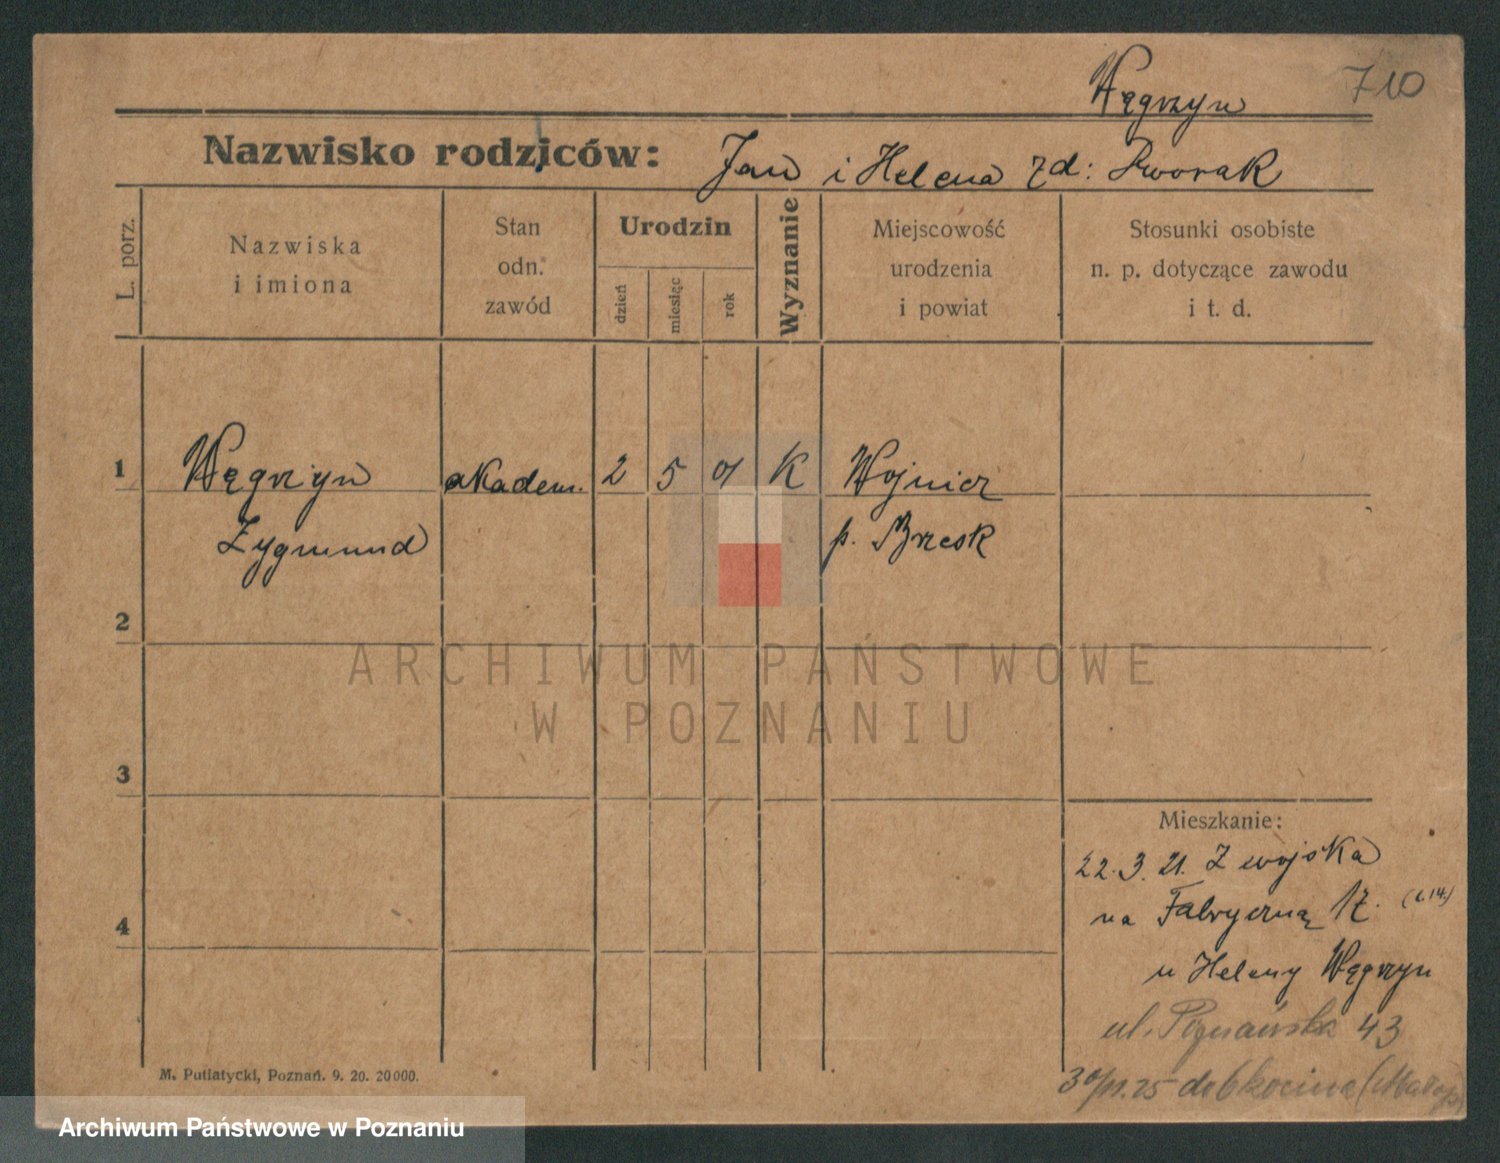 Węgrzyn 710
Nazwisko rodziców: Jan i Helena zd: Dworak
L. porz.
Nazwiska
i imiona
Stan
odn.
zawód
Urodzin
dzień
miesiąc
rok
Wyznanie
Miejscowość
urodzenia
i powiat
Stosunki osobiste
n. p. dotyczące zawodu
i t. d.
1 Węgrzyn akadem. 2 5 01 K Wojnicz
Zygmund p. Brzesk
2
3
4
Mieszkanie:
22.3.21. Z wojska
na Fabryczną 17.
u Heleny Węgrzyn
ul. Poznańska 43
M. Putiatycki, Poznań. 9. 20. 20000.
ARCHIWUM PAŃSTWOWE
W POZNANIU
Archiwum Państwowe w Poznaniu